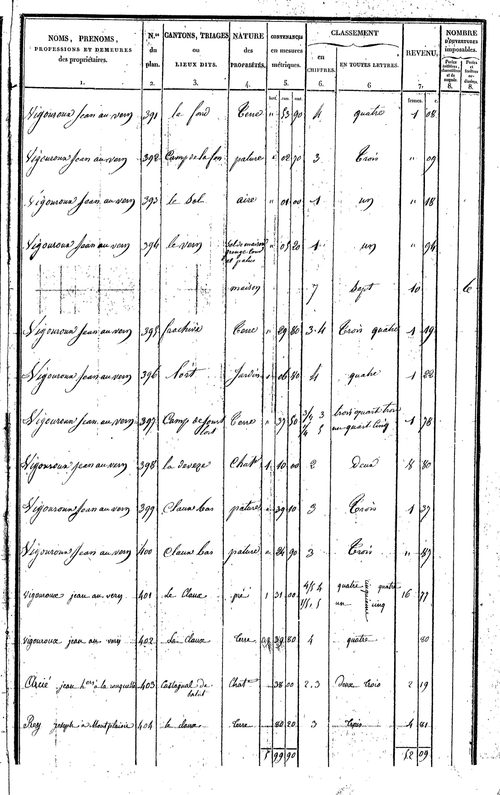 NOMS, PRENOMS, PROFESSIONS ET DEMEURES des propriétaires. | N.os du plan. | CANTONS, TRIAGES ou LIEUX DITS. | NATURE des PROPRIÉTÉS. | CONTENANCES en mesures métriques. | CLASSEMENT en CHIFFRES. | EN TOUTES LETTRES. | REVENU. | NOMBRE D'OUVERTURES imposables.
1. 2. 3. 4. 5. 6. 6 7. 8. 8.
francs. c.
Vigouroux Jean au very 391 la fon Terre " 53 90 4 quatre 1 08
Vigouroux Jean au very 392 Camp de la fon pature " 02 70 3 Trois " 09
Vigouroux Jean au very 393 le Sol aire " 01 00 1 un " 18
Vigouroux Jean au very 394 le very Sol de maison grange cour et patus " 05 20 1 un " 94
maison 7 Sept 10 6
Vigouroux Jean au very 395 Terre " 29 80 3-4 Trois quatre 1 19
Vigouroux Jean au very 396 l'ort Jardin " 06 80 4 quatre 1 22
Vigouroux Jean au very 397 Camp de Terre " 37 50 3/4 3 1/4 5 trois quart trois un quart cinq 1 78
Vigouroux Jean au very 398 la deveze Chat 1 10 00 2 Deux 8 80
Vigouroux Jean au very 399 Claux bas pature " 39 10 3 Trois 1 37
Vigouroux Jean au very 400 Claux bas pature " 24 90 3 Trois " 87
Vigouroux jean au very 401 Le Claux pré 1 31 00 4/5 4 1/5 5 quatre cinquièmes quatre un cinq 16 77
Vigouroux jean au very 402 Le Claux terre 39 80 4 quatre 80
jean à la 403 Castagnal de Chat 38 00 2.3 Deux trois 2 19
Rey joseph à Montplaisir 404 le claux terre 80 20 3 trois 4 81
5 99 90 52 09